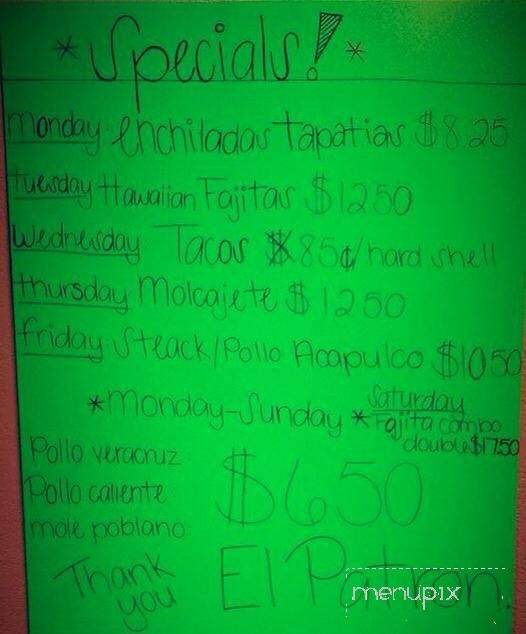 * Specials! *
monday enchiladas tapatias $8.25
tuesday Hawaiian Fajitas $1250
Wednesday Tacos 85¢/hard shell
thursday Molcajete $1250
friday Steack/Pollo Acapulco $1050
*Monday-Sunday *Saturday
Fajita combo
double $1750
Pollo veracruz
Pollo caliente $650
mole poblano
Thank you El Patron.
menupix